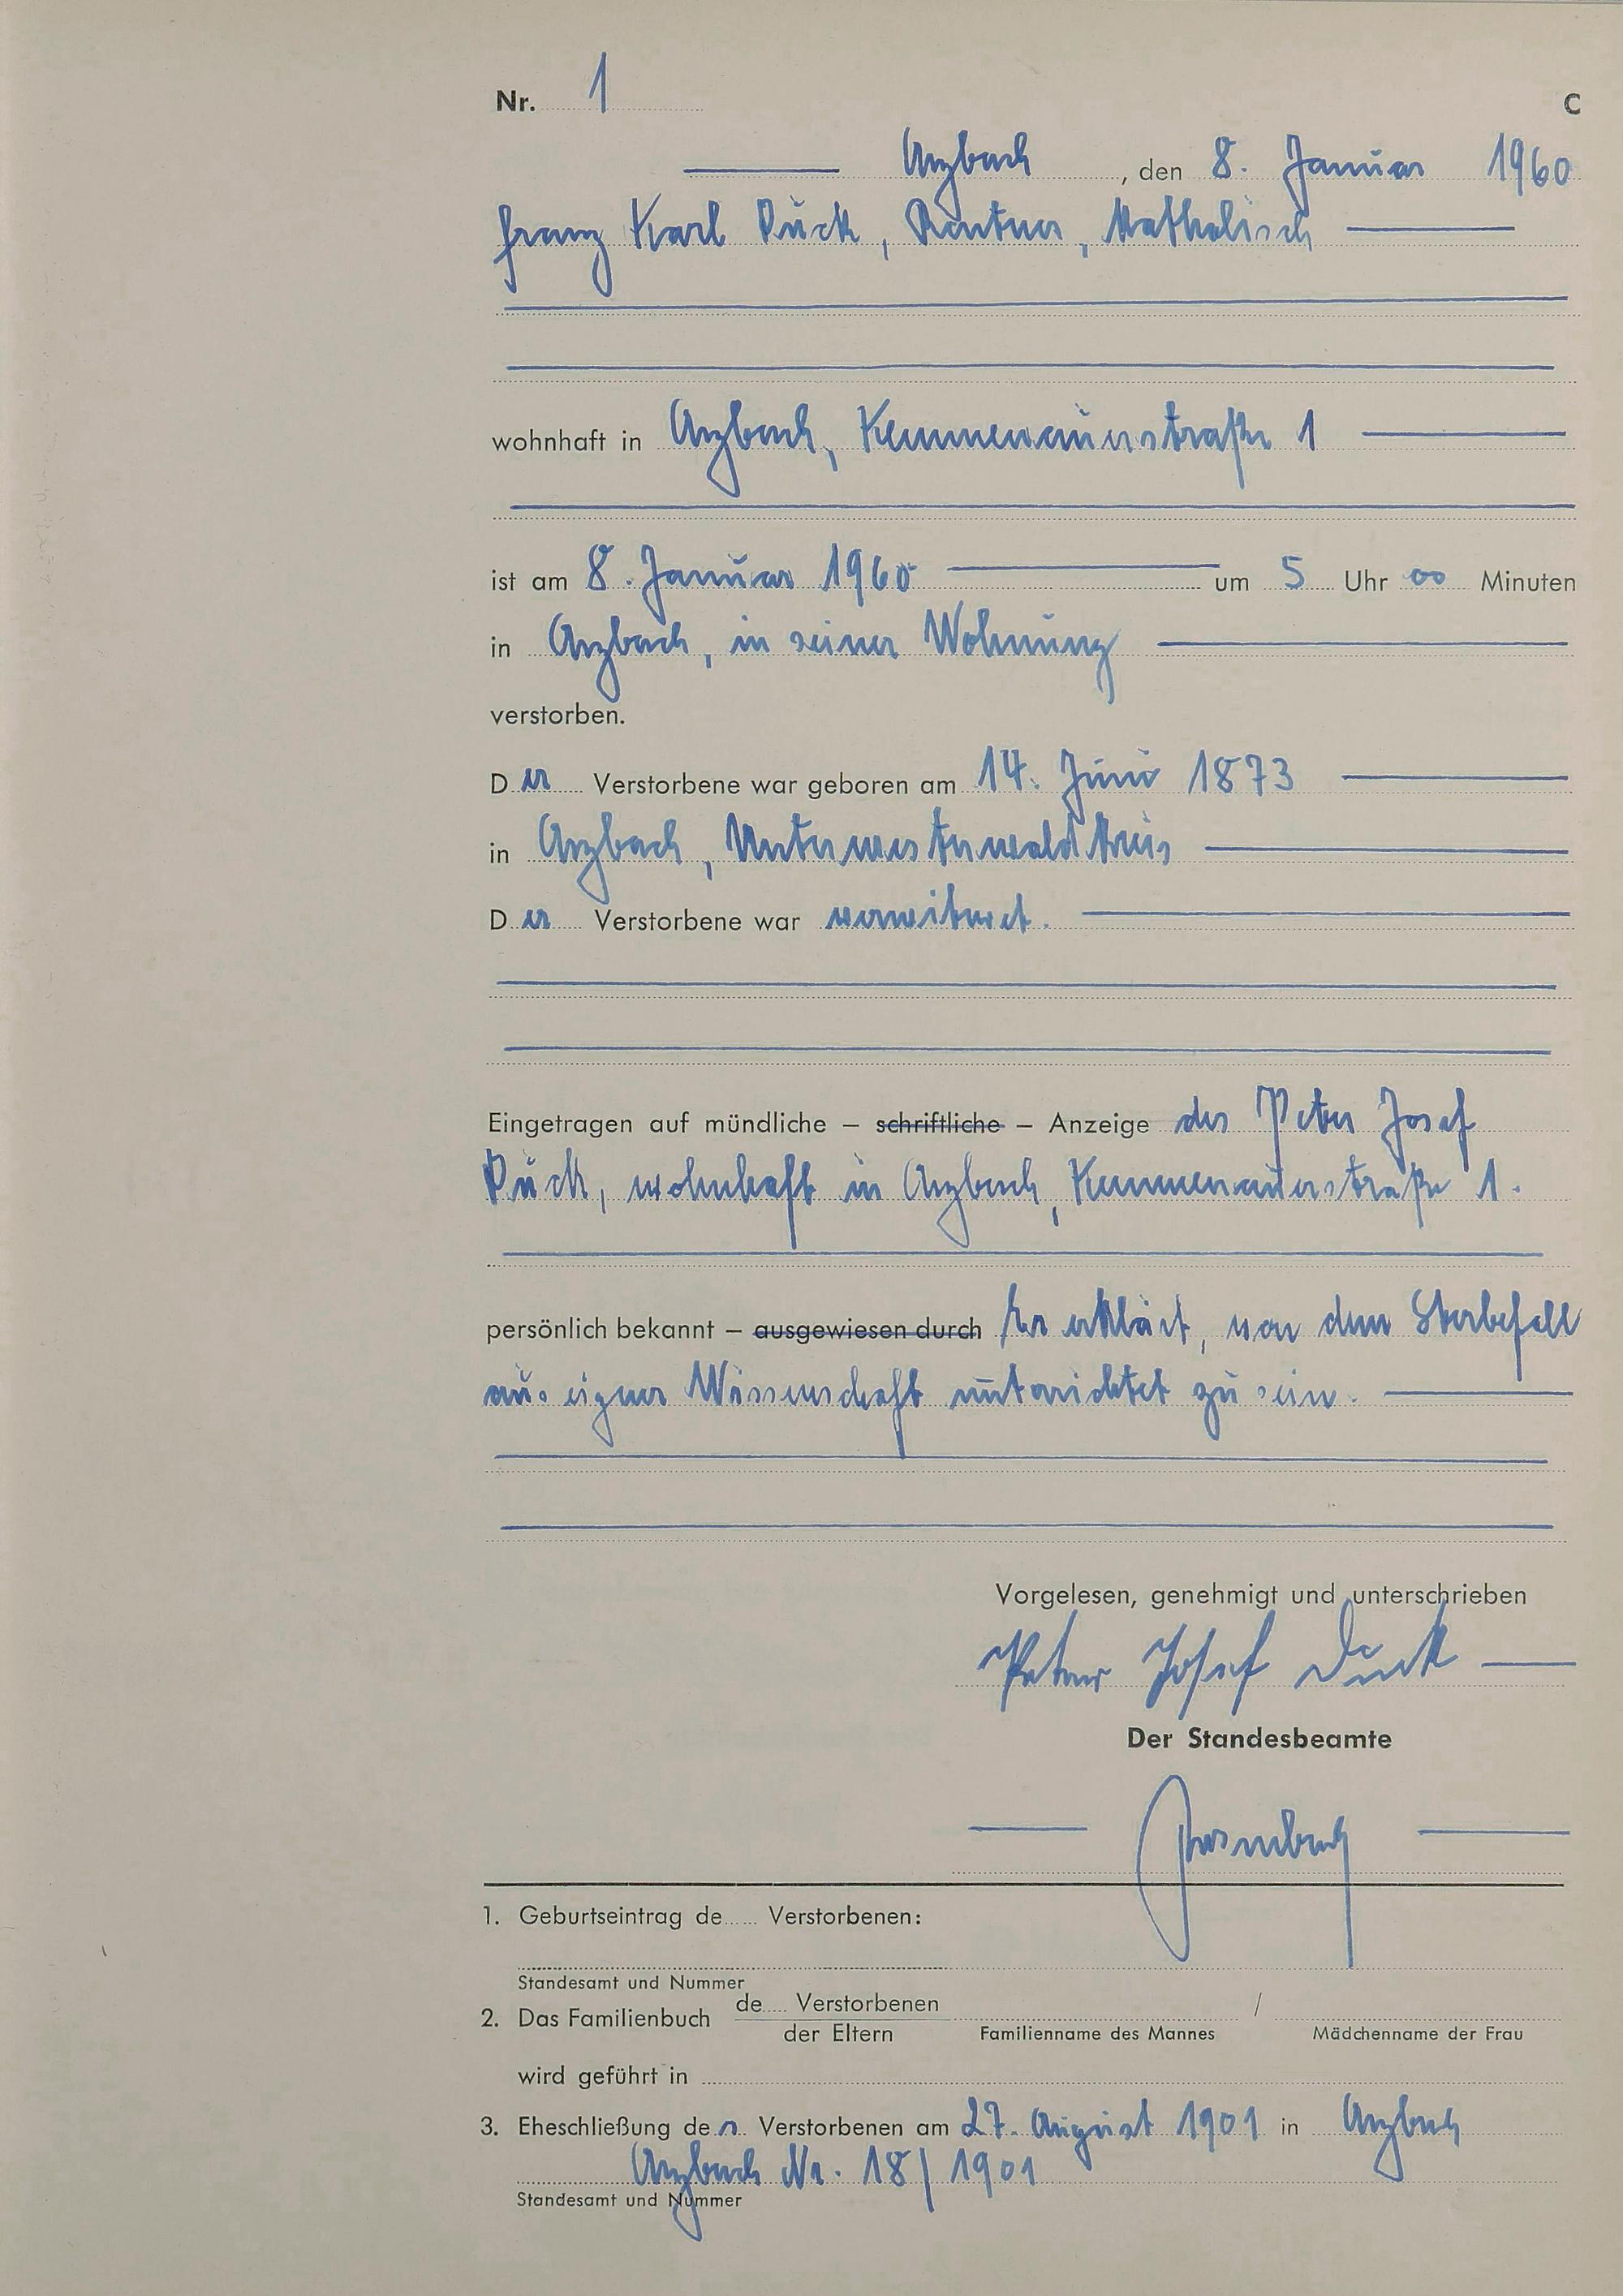 Nr. 1 C
Arzbach, den 8. Januar 1960
Franz Karl Dück, Rentner, katholisch
wohnhaft in Arzbach, Kemmenauerstraße 1
ist am 8. Januar 1960 um 5 Uhr 00 Minuten
in Arzbach, in seiner Wohnung
verstorben.
Der Verstorbene war geboren am 14. Juni 1873
in Arzbach, Unterwesterwaldkreis
Der Verstorbene war verwitwet.
Eingetragen auf mündliche – schriftliche – Anzeige des Peter Josef
Dück, wohnhaft in Arzbach, Kemmenauerstraße 1.
persönlich bekannt – ausgewiesen durch Er erklärt, von dem Sterbefall
aus eigner Wissenschaft unterrichtet zu sein.
Vorgelesen, genehmigt und unterschrieben
Peter Josef Dück
Der Standesbeamte
1. Geburtseintrag de Verstorbenen:
Standesamt und Nummer
2. Das Familienbuch de Verstorbenen /
der Eltern Familienname des Mannes Mädchenname der Frau
wird geführt in
3. Eheschließung des Verstorbenen am 27. August 1901 in Arzbach
Arzbach Nr. 18/1901
Standesamt und Nummer